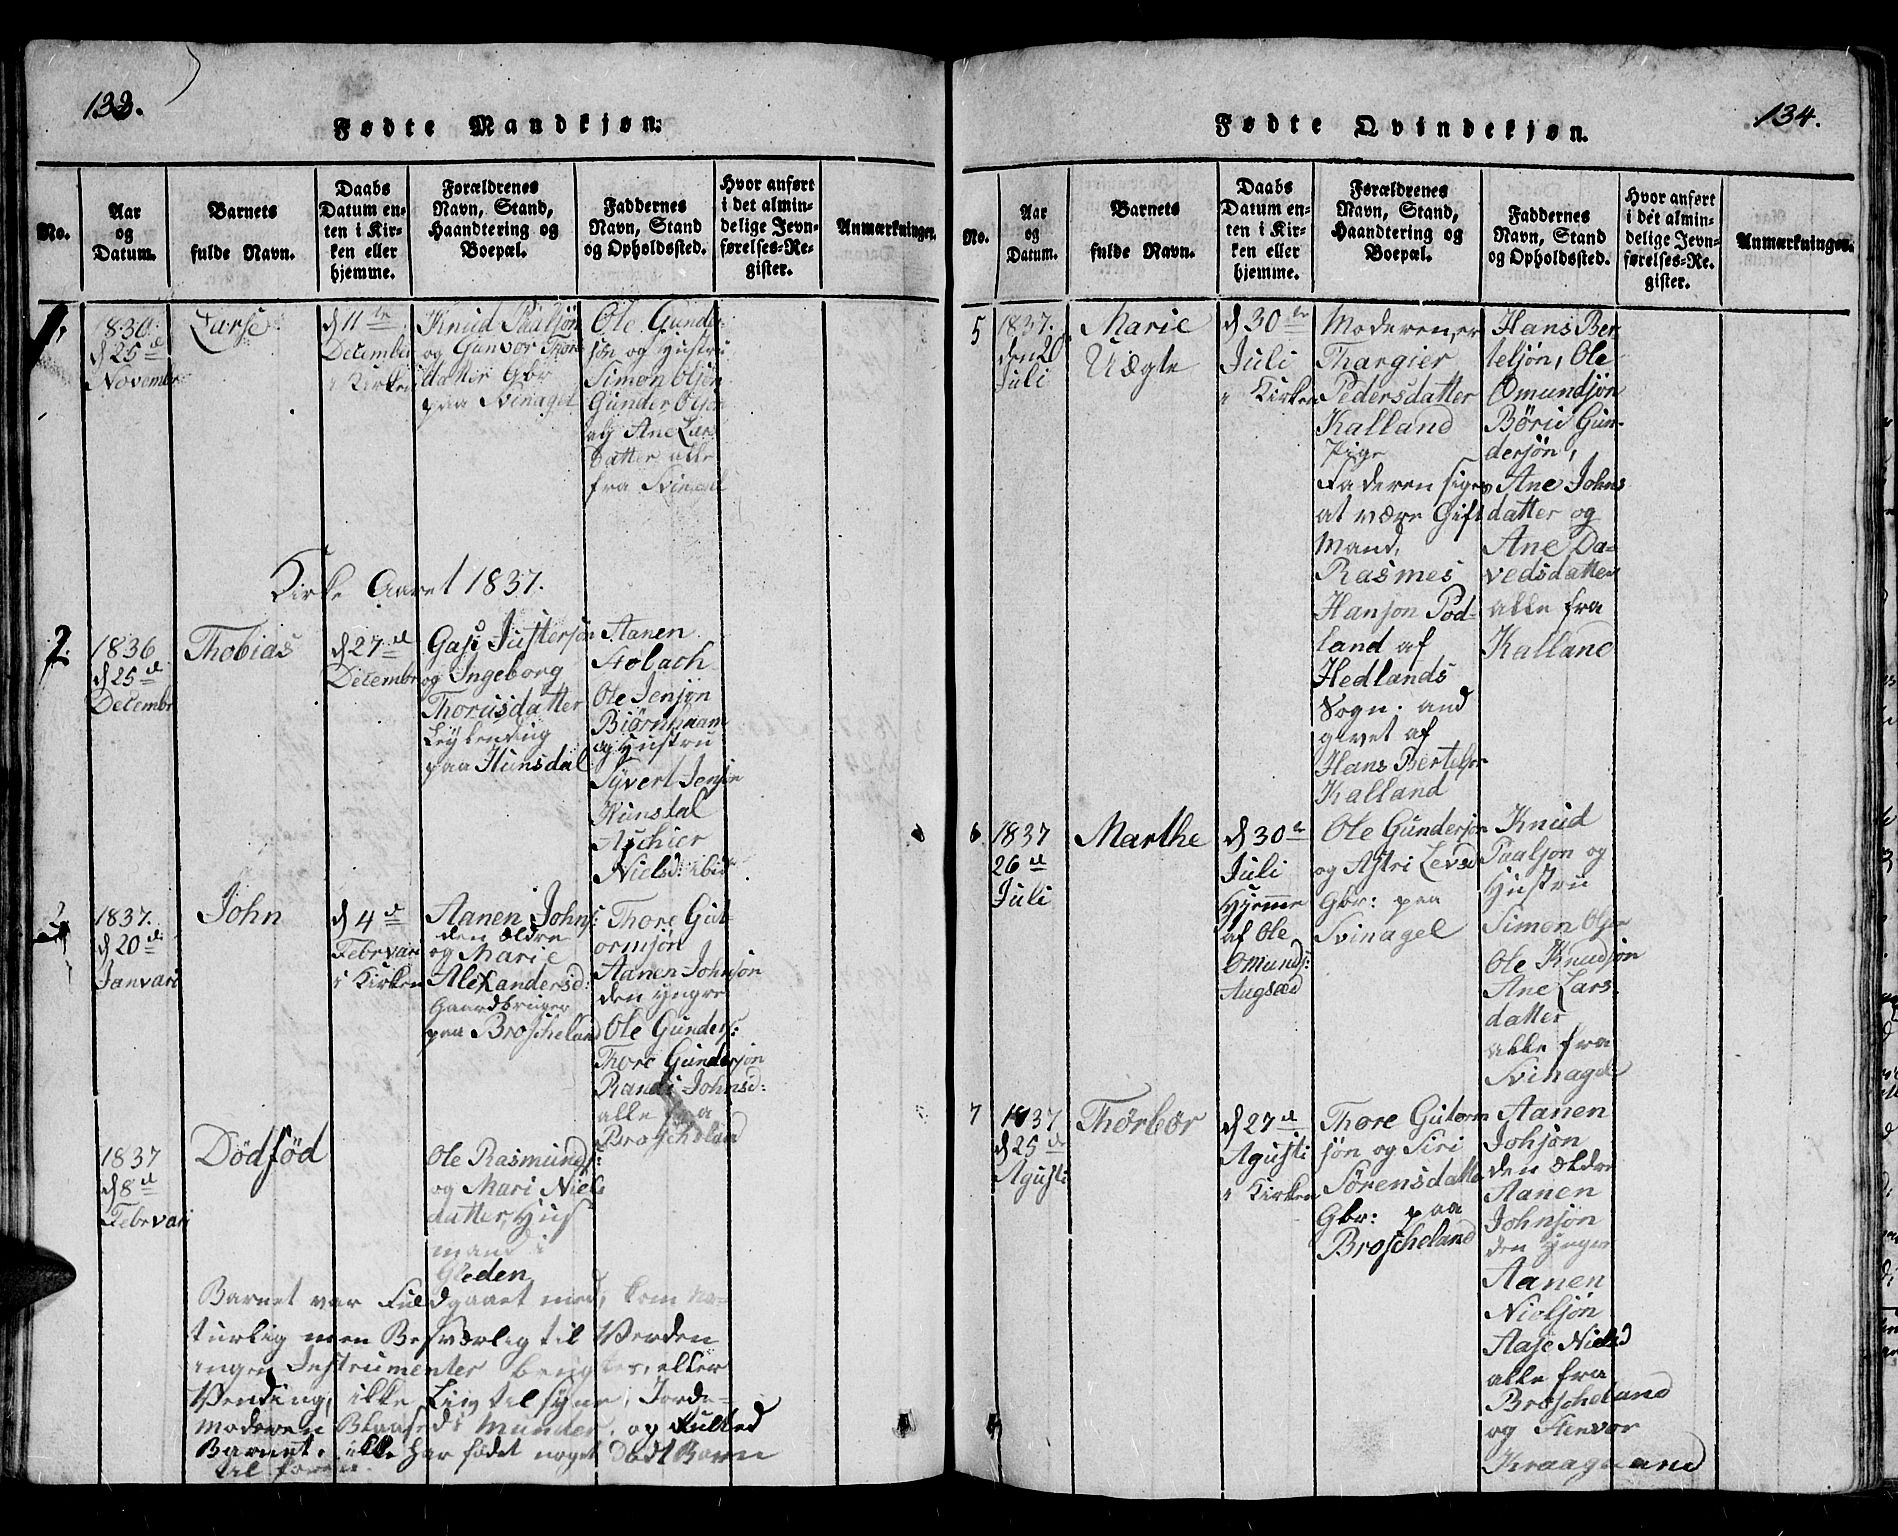 133.
Fødte Mandkjøn.
No.
Aar
og
Datum.
Barnets
fulde Navn.
Daabs
Datum en-
ten i Kir-
ken eller
hjemme.
Forældrenes
Navn, Stand,
Haandtering og
Boepæl.
Faddernes
Navn, Stand
og Opholdssted.
Hvor anført
i det almin-
delige Jevn-
førelses-Re-
gister.
Anmærkninger.
1.
1836.
d 25de
Novembr
Larse
d 11te
December
i Kirken
Knud Paalsøn
og Gunvor Thors
datter Gbr
paa Svinagel
Ole Gunder-
søn og Hustru
Simon Olsøn
Gunder Olsøn
og Ane Lars
Datter alle
fra Svinagel
Kirke Aaret 1837.
2
1836
d 25de
Decembr
Thobias
d 27de
Decembr
Justersøn
og Ingeborg
Thorusdatter
Leylending
paa Hunsdal
Aanen
Stolach
Ole Jensøn
og Hustru
Syvert Jensøn
Hunsdal
Aschier
Nielsd: ibid
1837.
d 20de
Janvari
John
d 4de
Februari
i Kirken
Aanen Johns:
den Ældre
og Marie
Alexandersd:
Gaardbruger
paa Broscheland
Thore Gut-
ormsøn
Aanen Johnsøn
den Yngre
Ole Gunders:
Thore Gundersøn
Randi Johnsd:
alle fra
Broscheland
1837
d 8de
Februari
Dödföd
Ole Rasmunds:
og Mari Niels
datter, Hus
mand i
Gleden
Barnet var Fuldgaaet med, kom na-
turlig men Besværlig til Verden
ingen Instrumenter brugtes, eller
Vending, ikke Liv til syne, Jorde-
moderen Blaaste i Munden, og
Barnet. ikke har födet noget Dödt Barn
til foren.
134.
Fødte Qvindekjøn.
No.
Aar
og
Datum.
Barnets
fulde Navn.
Daabs
Datum en-
ten i Kir-
ken eller
hjemme.
Forældrenes
Navn, Stand,
Haandtering og
Boepæl.
Faddernes
Navn, Stand
og Opholdssted.
Hvor anført
i det almin-
delige Jevn-
førelses-Re-
gister.
Anmærkninger.
5
1837.
den 20
Juli
Marie
Uægte
d 30te
Juli
i Kirken
Moderen, er
Thargier
Pedersdatter
Kalland
Pige
Faderen siges
at være Gift
Mand,
Rasmes
Hansøn Pod-
land af
Hedlands
Sogn. and
givet af
Hans Bertels
Kalland
Hans Ber
telsøn, Ole
Omundsøn
Börie Gun-
dersøn,
Ane Johns
datter og
Ane Da-
vedsdatter
alle fra
Kalland
6
1837
26de
Juli
Marthe
d 30te
Juli
Hjemme
af Ole
Omunds:
Augsæd
Ole Gundersøn
og Astri Levsd
Gbr: paa
Svinagel
Knud
Paalsøn og
Hustru
Simon Olsøn
Ole Knudsøn
Ane Lars
datter
alle fra
Svinagel
7
1837
d 25de
Agusti
Thorbor
d 27de
Agusti
i Kirken
Thore Gutorm
søn og Siri
Sørensdatter
Gbr: paa
Broscheland
Aanen
Johsøn
den Ældre
Aanen
Johnsøn
den Yngre
Aanen
Nielsøn
Aase Nielsd
alle fra
Broscheland
og Stenvor
Kraageland